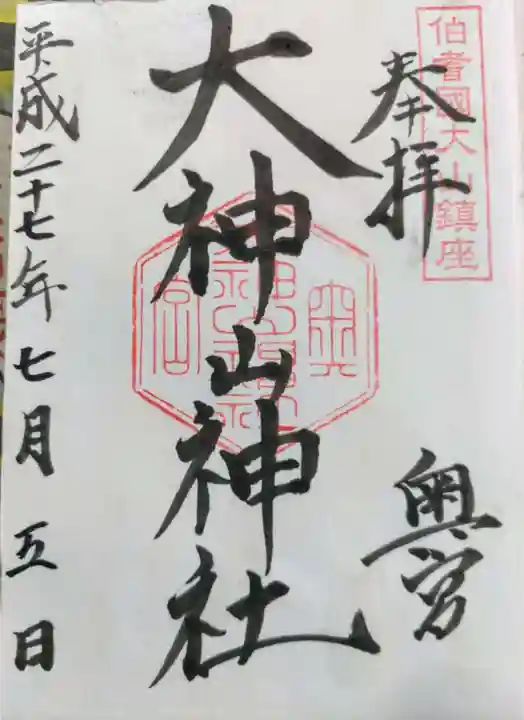 伯耆國大山鎮座
奉拝
奥宮
大神山神社
平成二十七年七月五日
奥
宮